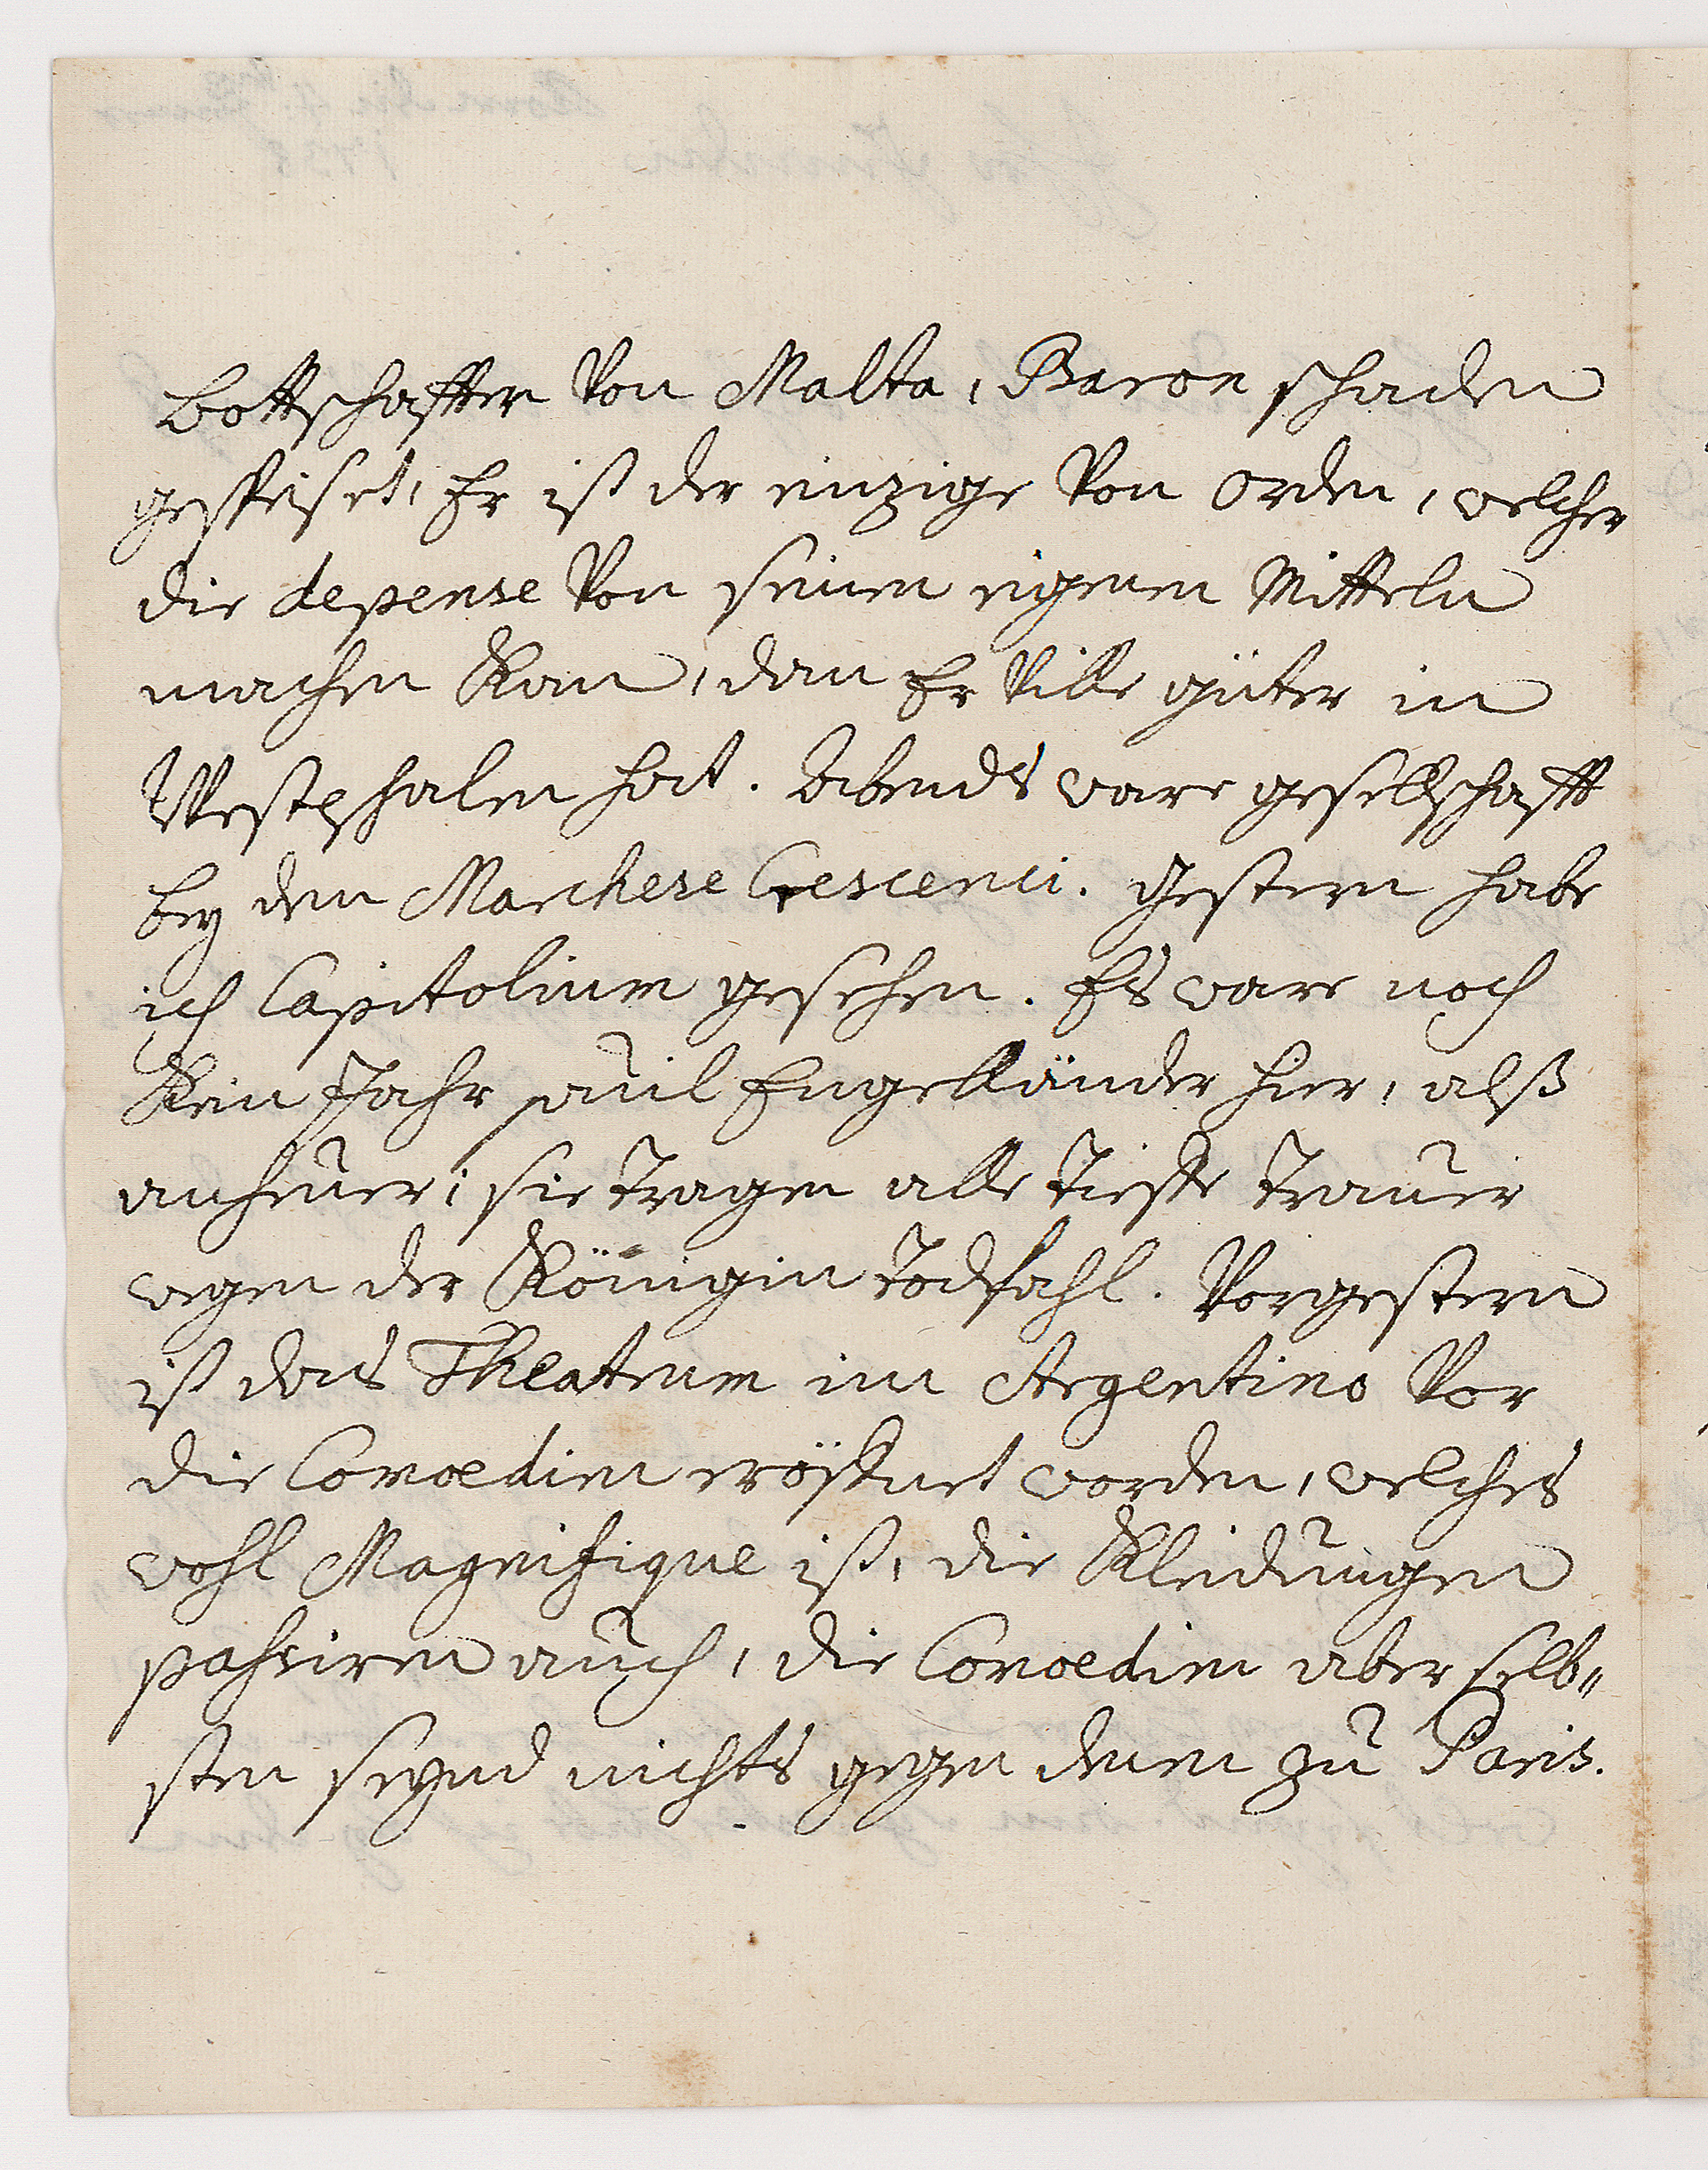 bottschafftern Von Malta, Baron schaden
gespeiset, Er ist der einzige Von Orden, welcher
die depense Von seinen eigenen Mitteln
machen Kan, dan Er Ville güter in
Westphalen hat. Abends ware gesellschafft
bey dem Marchese Crescenci. Gestern habe
ich Capitolium gesehen. Es ware noch
Kein Jahr so viel Engelländer hier, alß
anheuer; sie tragen alle tieffe trauer
wegen der Königin todfahl. Vorgestern
ist das Theatrum im Argentino Vor
die Comoedien eröffnet worden, welches
wohl Magnifique ist, die Kleidungen
passiren auch, die Comoedien aber selb„
sten seynd nichts gegen denen zu Paris.